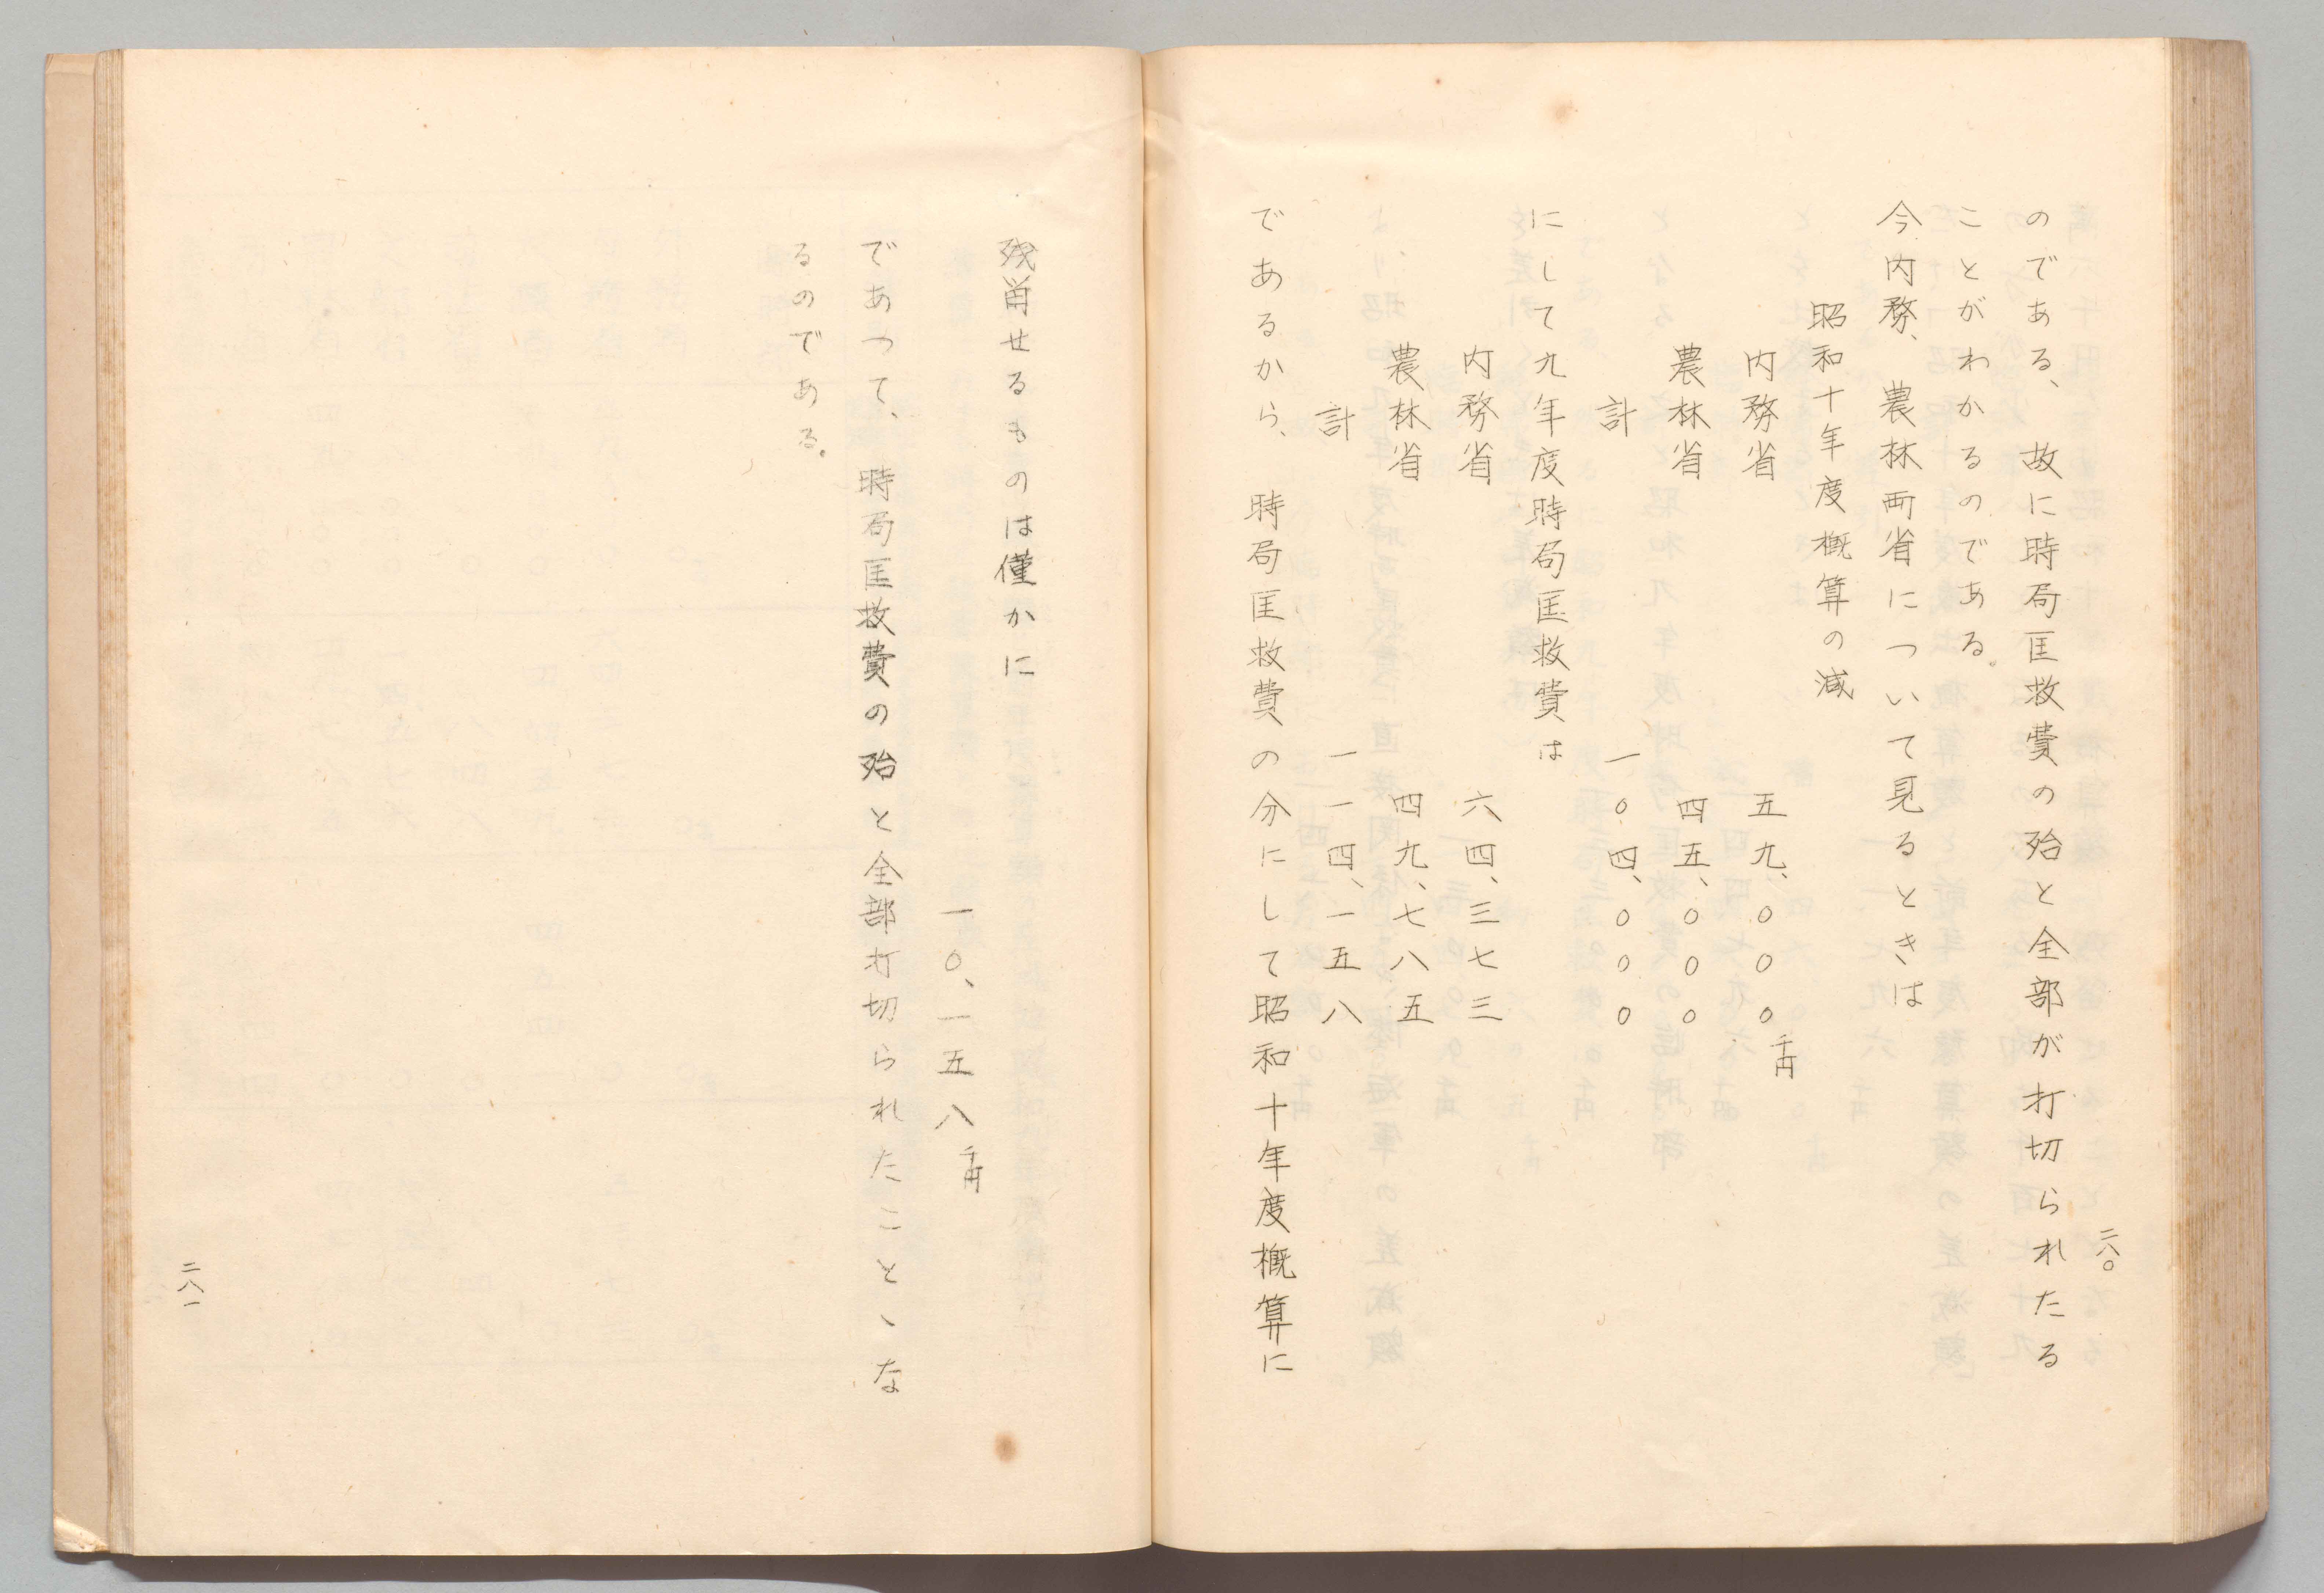 のである、故に時局匡救費の殆と全部が打切られたる
ことがわかるのである。
今内務、農林両省について見るときは
昭和十年度概算の減
内務省　五九、〇〇〇千円
農林省　四五、〇〇〇
計　一〇四、〇〇〇
にして九年度時局匡救費は
内務省　六四、三七三
農林省　四九、七八五
計　一一四、一五八
であるから、時局匡救費の分にして昭和十年度概算に
二八〇
残甾せるものは僅かに
一〇、一五八千円
であつて、時局匡救費の殆と全部打切られたことゝな
るのである。
二八一